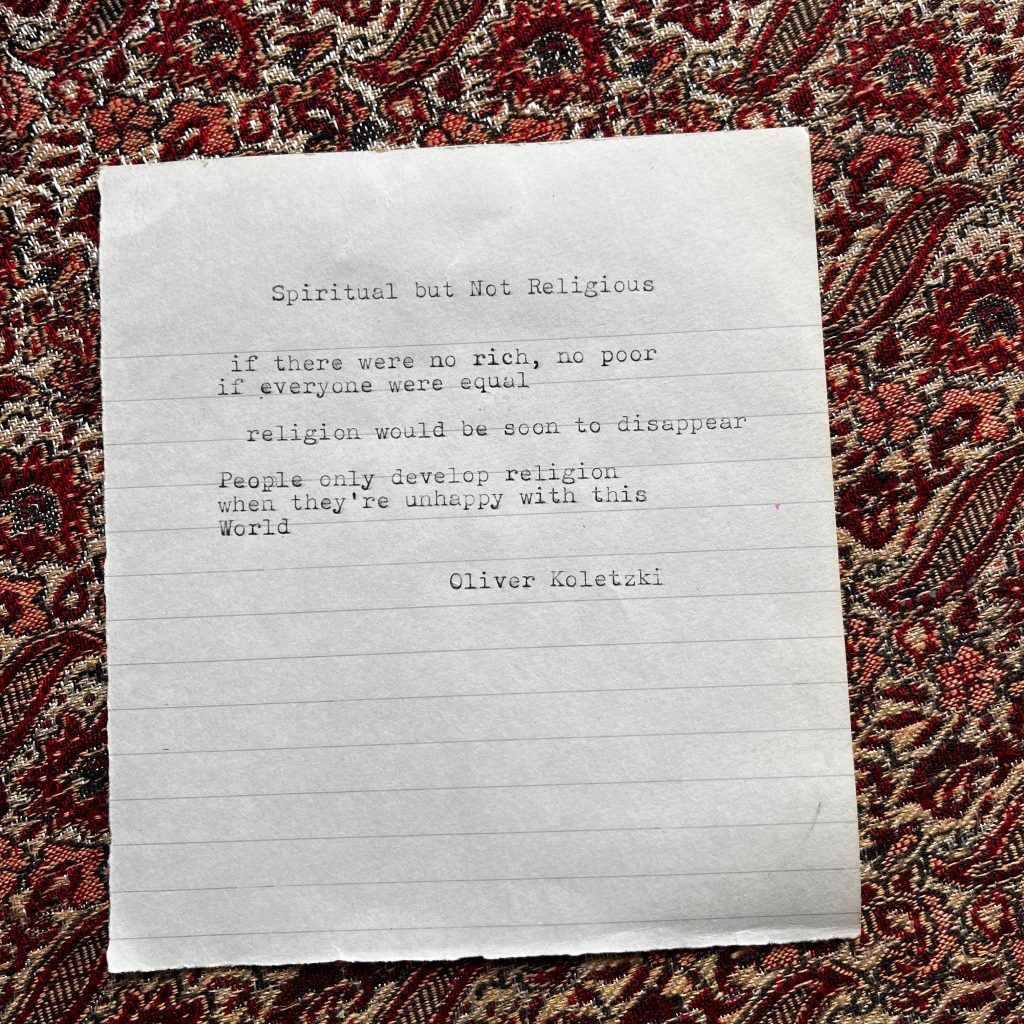 Spiritual but Not Religious
if there were no rich, no poor
if everyone were equal
religion would be soon to disappear
People only develop religion
when they're unhappy with this
World
Oliver Koletzki